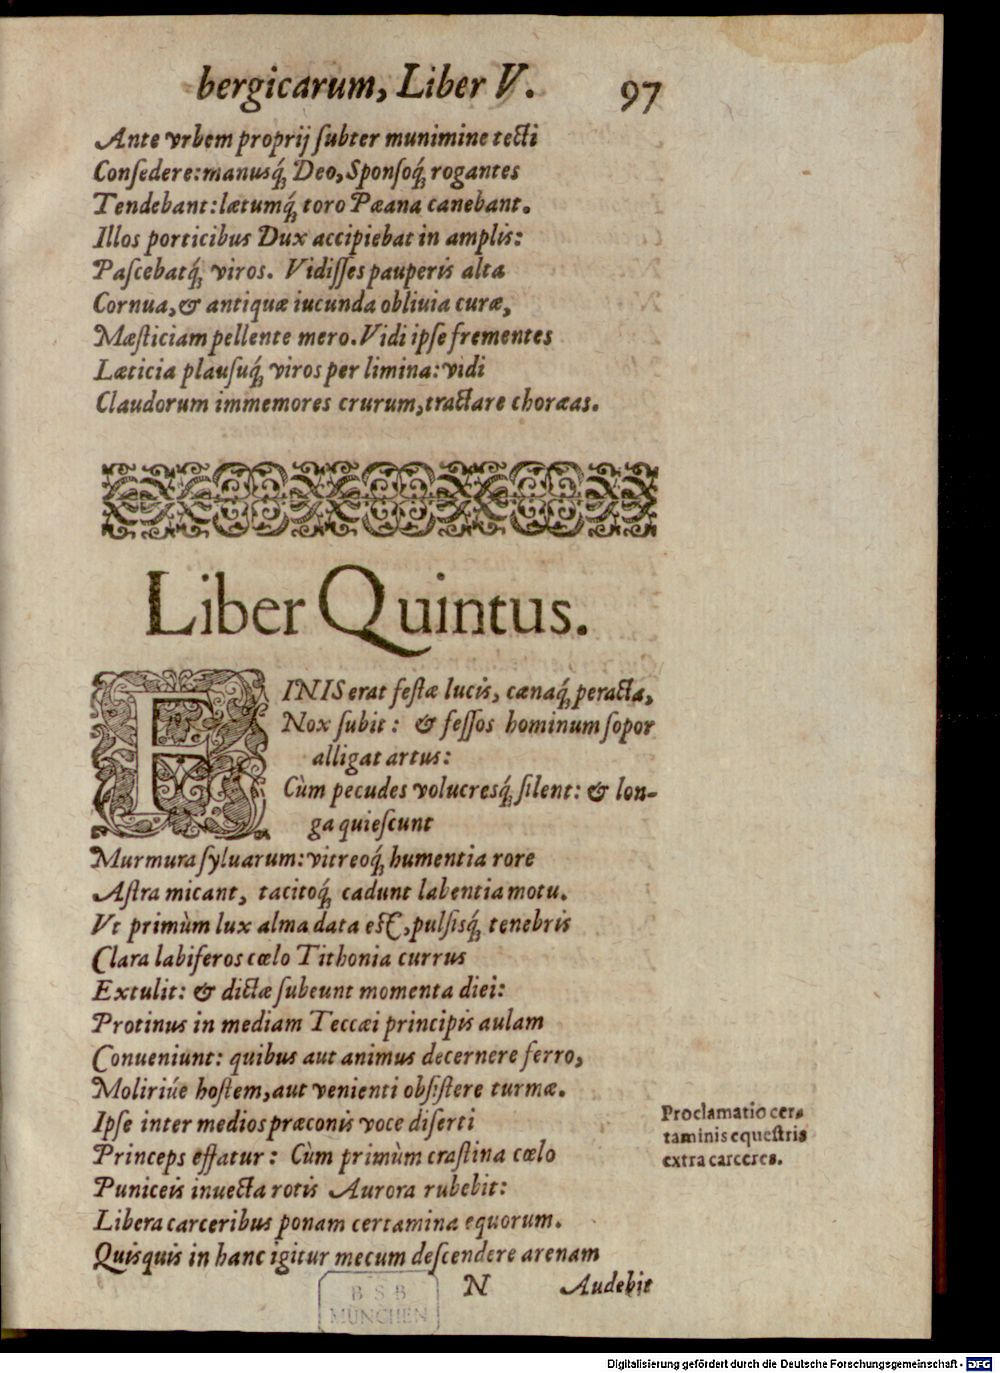 bergicarum, Liber V. 97
Ante vrbem proprij ſubter munimine tecti
Conſedere: manusq́ꝫ Deo, Sponſoq́ꝫ rogantes
Tendebant: lætumq́ꝫ toro Pæana canebant.
Illos porticibus Dux accipiebat in amplis:
Paſcebatq́ꝫ viros. Vidiſſes pauperis alta
Cornua, & antiquæ iucunda obliuia curæ,
Mæſticiam pellente mero. Vidi ipſe frementes
Læticia plauſuq́ꝫ viros per limina: vidi
Claudorum immemores crurum, tractare choræas.
Liber Quintus.
FINIS erat feſtæ lucis, cænaq́ꝫ peracta,
Nox ſubit: & feſſos hominum ſopor
alligat artus:
Cùm pecudes volucresq́ꝫ ſilent: & lon-
ga quieſcunt
Murmura ſyluarum: vitreoq́ꝫ humentia rore
Aſtra micant, tacitoq́ꝫ cadunt labentia motu.
Vt primùm lux alma data eſt, pulſisq́ꝫ tenebris
Clara labiferos cœlo Tithonia currus
Extulit: & dictæ ſubeunt momenta diei:
Protinus in mediam Teccæi principis aulam
Conueniunt: quibus aut animus decernere ferro,
Moliriúe hoſtem, aut venienti obſiſtere turmæ.
Ipſe inter medios præconis voce diſerti
Princeps effatur: Cùm primùm craſtina cœlo
Puniceis inuecta rotis Aurora rubebit:
Libera carceribus ponam certamina equorum.
Quisquis in hanc igitur mecum deſcendere arenam
Proclamatio cer-
taminis equeſtris
extra carceres.
N Audebit
BSB
MÜNCHEN
Digitalisierung gefördert durch die Deutsche Forschungsgemeinschaft - DFG